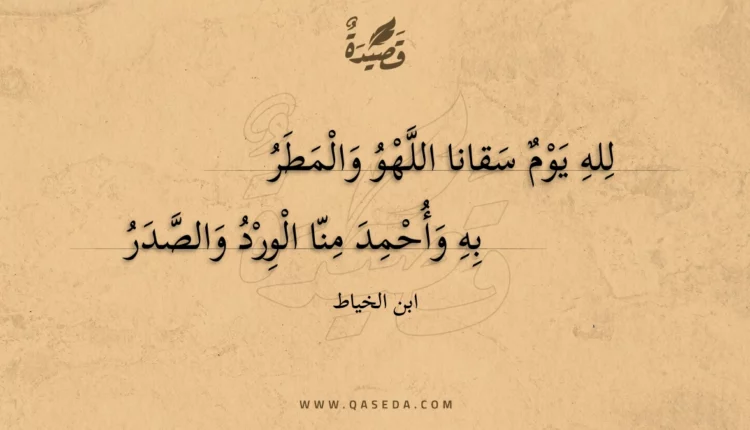 قَصِيْدَةٌ
لِلهِ يَوْمٌ سَقانا اللَّهْوُ وَالْمَطَرُ
بِهِ وَأُحْمِدَ مِنّا الْوِرْدُ وَالصَّدَرُ
ابن الخياط
WWW.QASEDA.COM